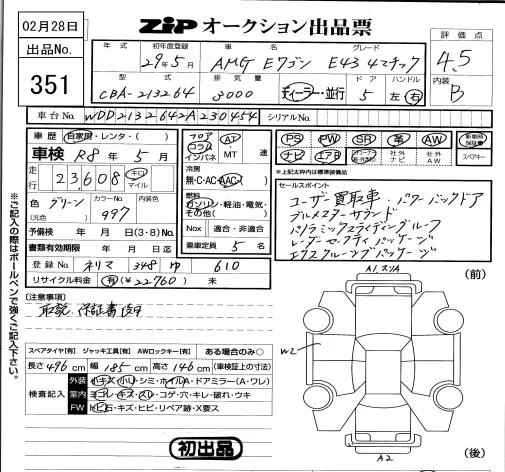 02月28日
ZIP オークション出品票
出品No.
351
年式 初年度登録 車名 グレード
29年5月 AMG Eワゴン E43 4マチック
評価点
4.5
内装
B
型式 排気量 ドア ハンドル
CBA-213264 3000 ディーラー・並行 5 左・右
車台No. WDD2132642A230454 シリアルNo.
車歴 自家用・レンタ・( )
車検 R8年5月
走行 23,608 キロ マイル
色 グリーン
(元色)
カラーNo. 997
内装色
予備検 年 月 日(3・8)No.
書類有効期限 年 月 日迄
登録No. ネリマ 348 ゆ 610
リサイクル料金 有(¥22760) 未
フロア コラム インパネ
AT・MT 速
冷房
無・C・AC・AAC
燃料
ガソリン・軽油・電気・その他( )
Nox 適合・非適合
乗車定員 5 名
PS PW SR 革 AW 新車時保証書
ナビ エアB 社外ナビ 社外AW スペアキー
*上記太枠内は標準装備品
セールスポイント
ユーザー買取車・パワーバックドア
ブルメスターサウンド
パノラミックスライディングルーフ
レーダーセーフティパッケージ
エクスクルーシブパッケージ
※ご記入の際はボールペンで強くご記入下さい。
[注意事項]
取説・保証書
スペアタイヤ[有] ジャッキ工具[有] AWロックキー[有] ある場合のみ○
長さ496cm 幅185cm 高さ146cm (車検証上の寸法)
検査記入
外装 小キズ・小U・シミ・ホイルA・ドアミラー(A・ワレ)
室内 ヨゴレ・キズ・スレ・コゲ・穴・キレ・破れ・ウキ
FW トビ石・キズ・ヒビ・リペア跡・X要ス
初出品
(前)
W2
A2
(後)